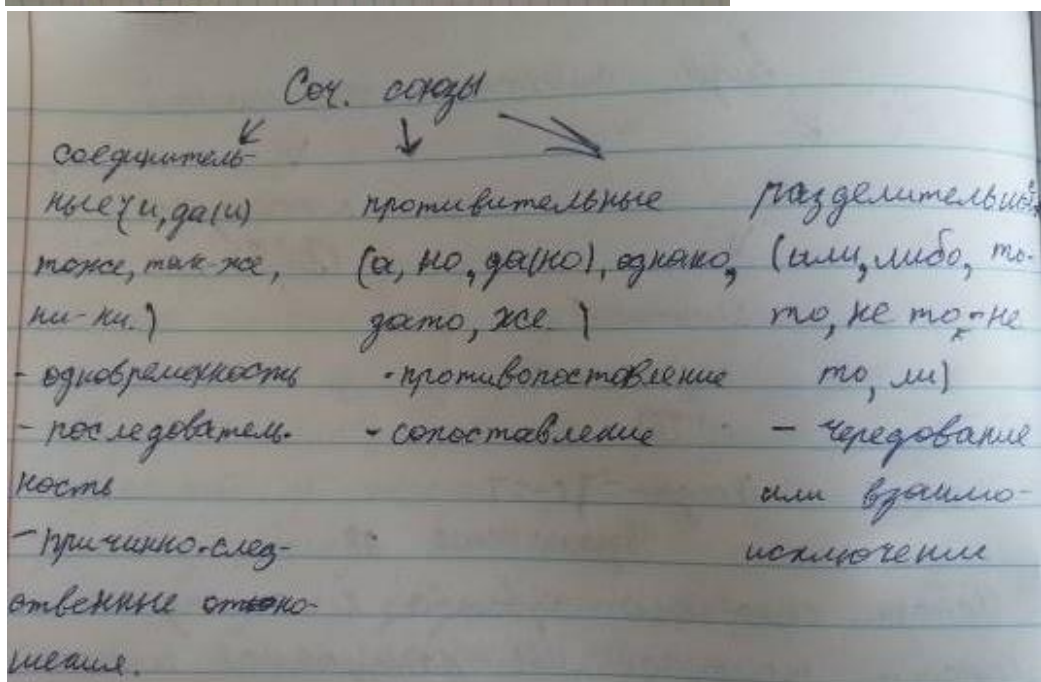 Соч. союзы
соединитель-
ные (и, да(и)
тоже, так-же,
ни-ни.)
- одновременность
- последователь-
ность
- причинно-след-
ственные отно-
шения.
противительные
(а, но, да(но), однако,
зато, же.)
- противопоставление
- сопоставление
разделительные
(или, либо, то-
то, не то-не
то, ли)
- чередование
или взаимо-
исключение